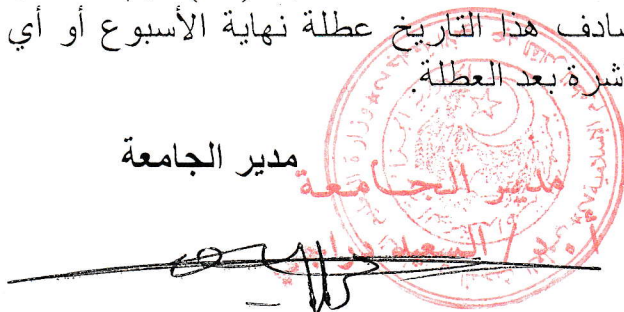 صادف هذا التاريخ عطلة نهاية الأسبوع أو أي
شرة بعد العطلة.
مدير الجامعة
مدير الجامعة
أ.د / السعيد دراجي